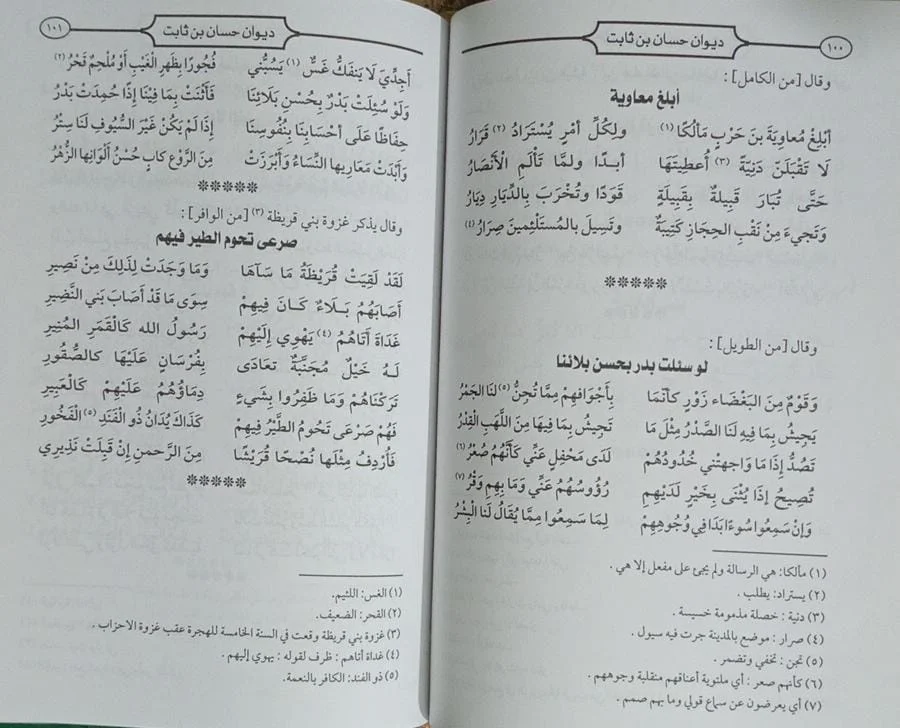 ديوان حسان بن ثابت
١٠٠
وقال [من الكامل] :
أبلغ معاوية
أبْلِغْ مُعاوِيَةَ بنَ حَرْبٍ مَألُكًا (١) ولكُلِّ أمْرٍ يُسْتَرَادُ (٢) قَرَارُ
لَا تَقْبَلَنّ دَنِيّةً (٣) أُعطِيتَهَا أبــدًا ولمّا تَألَمِ الأَنْصَارُ
حَتَّى تُبَارَ قَبِيلةٌ بِقَبِيلَةٍ قَوَدًا وتُخْرَبَ بِالدِّيَارِ دِيَارُ
وَتَجِيءَ مِنْ نَقْبِ الحِجَازِ كَتِيبَةٌ وتَسِيلَ بالمُسْتَلْئِمينَ صِرَارُ (٤)
*****
وقال [من الطويل] :
لو سئلت بدر بحسن بلائنا
وَقَوْمٌ مِنَ البَغْضَاءِ زَوْرٍ كَأنّمَا بِأَجْوَافِهِمْ مِمَّا تُجِنُّ (٥) لنَا الجَمْرُ
يَجِيشُ بِمَا فِيهِ لَنَا الصَّدْرُ مِثْلَ مَا تَجِيشُ بِمَا فِيهَا مِنَ اللَّهَبِ القِدْرُ
تَصُدُّ إذَا مَا وَاجهتْني خُدُودُهُمْ لَدَى مَحْفِلٍ عَنِّي كَأَنَّهُمُ صُعْرُ (٦)
تُصِيخُ إذَا يُثْنَى بِخَيْرٍ لَدَيْهِمِ رُؤُوسُهُمُ عَنِّي وَمَا بِهِمِ وَقْرُ (٧)
وَإنْ سَمِعُوا سُوءًا بَدَا فِي وُجُوهِهِمْ لِمَا سَمِعُوا مِمَّا يُقَالُ لَنَا البِشْرُ
(١) مألكا: هي الرسالة ولم يجئ على مفعل إلا هي .
(٢) يستراد: يطلب .
(٣) دنية : خصلة مذمومة خسيسة .
(٤) صرار : موضع بالمدينة جرت فيه سيول .
(٥) تجن : تخفي وتضمر .
(٦) كأنهم صعر : أي ملتوية أعناقهم منقلبة وجوههم .
(٧) أي يعرضون عن سماع قولي وما بهم صمم .
ديوان حسان بن ثابت
١٠١
أَجِدِّيَ لَا يَنفَكُّ غَسٌّ (١) يَسُبُّني فُجُورًا بِظَهرِ الْغَيْبِ أَوْ مُلْحِمٌ قَحْرُ (٢)
وَلَوْ سُئِلَتْ بَدْرٌ بِحُسْنِ بَلَائِنَا فَأَثْنَتْ بِمَا فِيْنَا إذًا حُمِدَتْ بَدْرُ
حِفَاظًا عَلَى أَحْسَابِنَا بِنُفُوسِنَا إذَا لَمْ يَكُنْ غَيْرَ السُّيُوفِ لَنَا سِتْرُ
وَأَبْدَتْ مَعَارِيها النِّسَاءُ وَأَبْرَزَتْ مِنَ الرَّوْعِ كابٍ حُسْنُ أَلْوَانِها الزُّهْرُ
*****
وقال يذكر غزوة بني قريظة (٣) [من الوافر] :
صرعى تحوم الطير فيهم
لَقَدْ لَقِيَتْ قُرَيْظَةُ مَا سَآهَا وَمَا وَجَدَتْ لِذَلِكَ مِنْ نَصِيرِ
أَصَابَهُمُ بَلَاءٌ كَانَ فِيهِمْ سِوَى مَا قَدْ أَصَابَ بَنِي النَّضِيرِ
غَدَاةَ أَتَاهُمُ (٤) يَهْوِي إلَيْهِمْ رَسُولُ الله كَالْقَمَرِ المُنِيرِ
لَهُ خَيْلٌ مُجَنَّبَةٌ تَعَادَى بِفُرْسَانٍ عَلَيْهَا كالصُّقُورِ
تَرَكْنَاهُمْ وَمَا ظَفِرُوا بِشَيءٍ دِمَاؤُهُمُ عَلَيْهِمْ كَالْعَبِيرِ
فَهُمْ صَرْعَى تَحُومُ الطَّيْرُ فِيهِمْ كَذَاكَ يُدَانُ ذُو الْفَنَدِ (٥) الْفَخُورِ
فَأُرْدِفُ مِثْلَهَا نُصْحًا قُرَيْشًا مِنَ الرَّحمنِ إنْ قَبِلَتْ نَذِيرِي
*****
(١) الغس: اللئيم.
(٢) القحر: الضعيف.
(٣) غزوة بني قريظة وقعت في السنة الخامسة للهجرة عقب غزوة الاحزاب .
(٤) غداة أتاهم : ظرف لقوله : يهوي إليهم .
(٥) ذو الفند: الكافر بالنعمة.